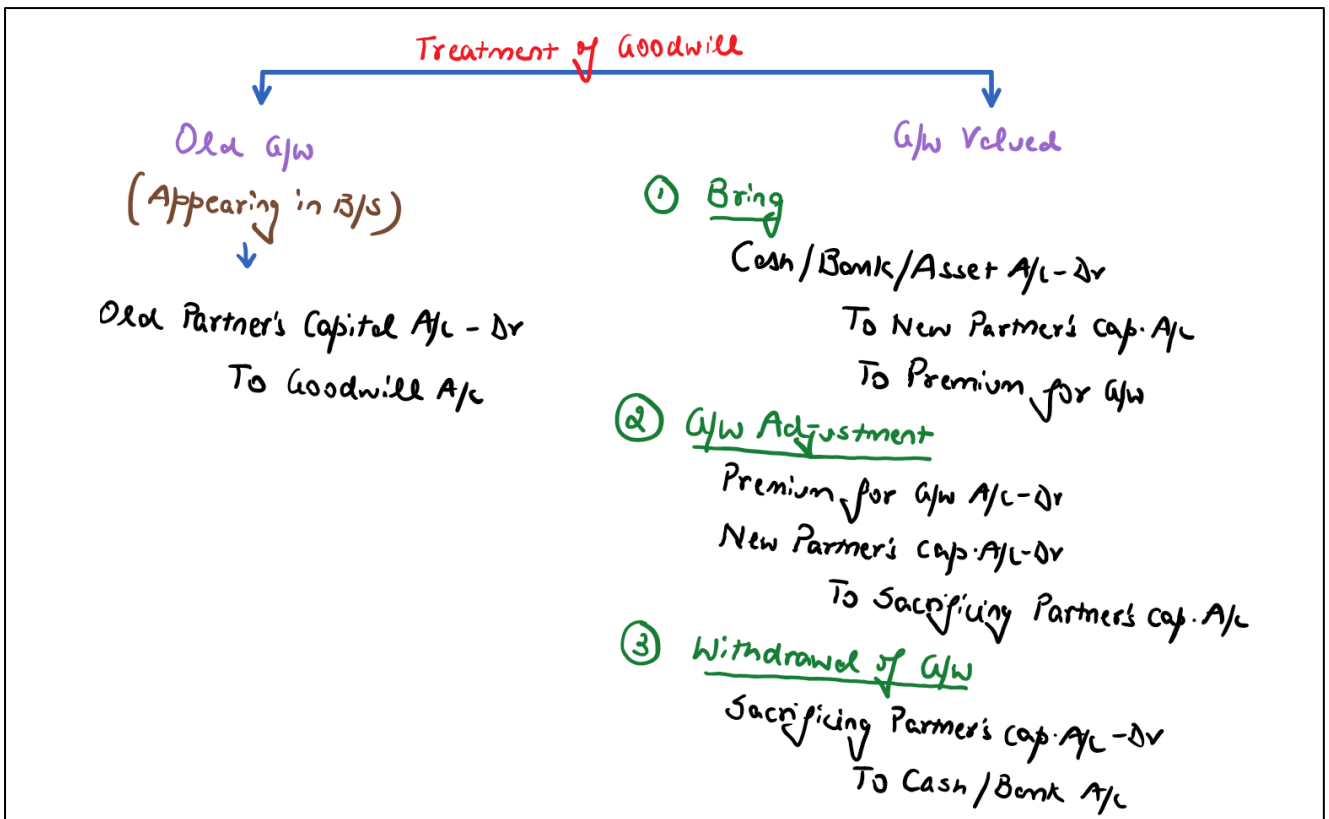 Treatment of Goodwill
Old G/w
(Appearing in B/s)
Old Partner's Capital A/c - Dr
To Goodwill A/c
G/w Valued
① Bring
Cash/Bank/Asset A/c-Dr
To New Partner's cap. A/c
To Premium for G/w
② G/w Adjustment
Premium for G/w A/c-Dr
New Partner's cap. A/c-Dr
To Sacrificing Partner's cap. A/c
③ Withdrawal of G/w
Sacrificing Partner's cap. A/c -Dr
To Cash/Bank A/c